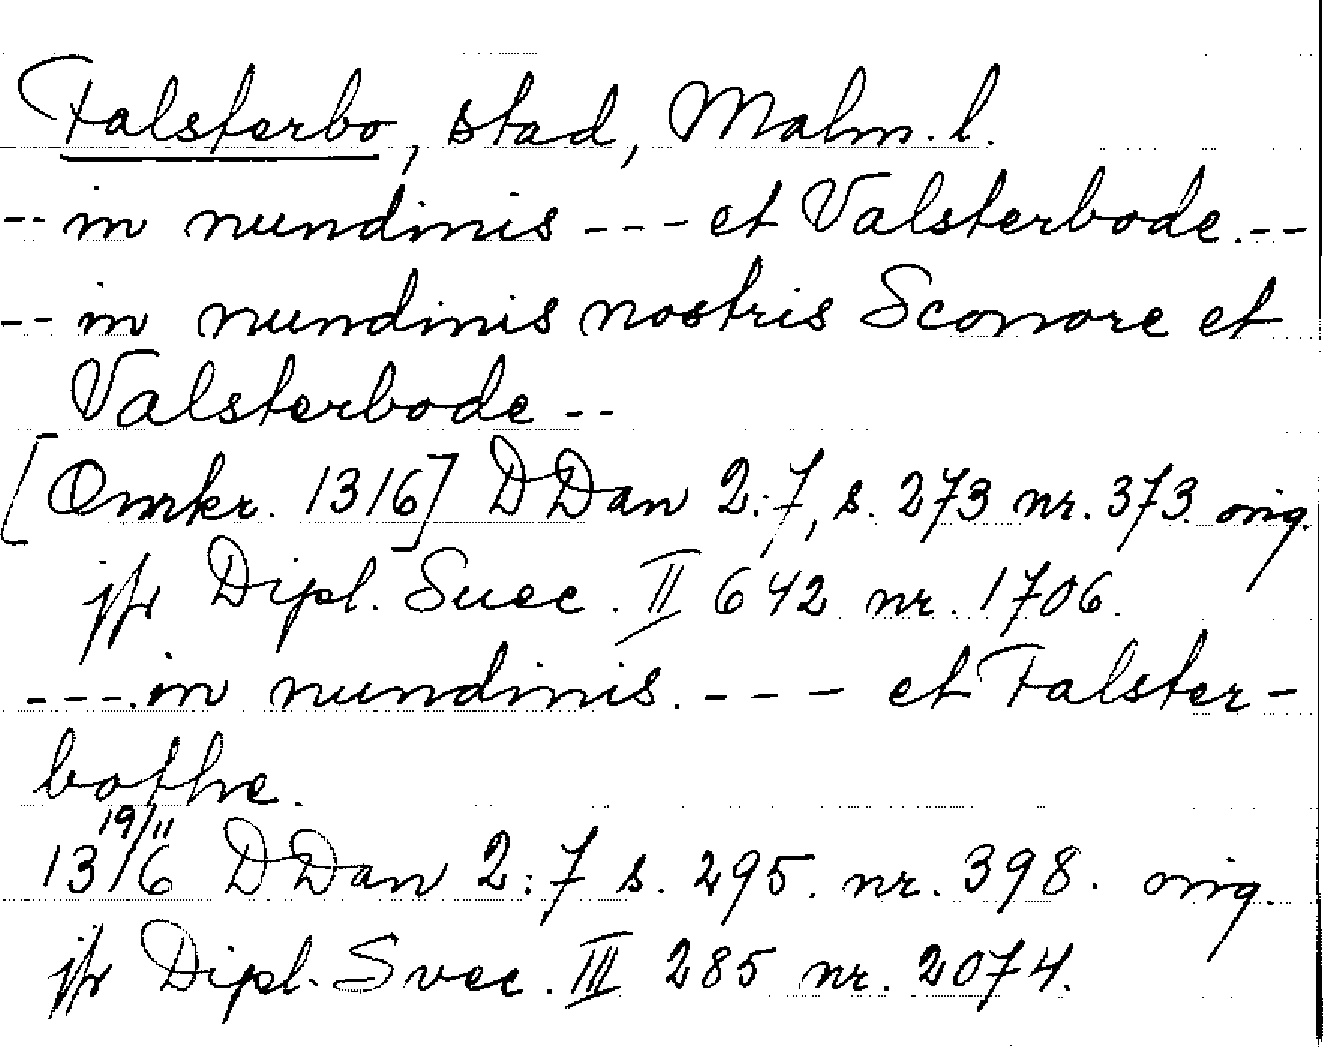 Falsterbo, stad, Malm. l.
-- in nundinis --- et Valsterbode.--
-- in nundinis nostris Sconore et
Valsterbode --
[Omkr. 1316] DDan 2:7, s. 273 nr. 373. orig.
jfr Dipl. Suec. II 642 nr. 1706.
--- in nundinis. --- et Falster-
bothe.
19/11
1316 DDan 2:7 s. 295. nr. 398. orig.
jfr Dipl. Svec. III 285 nr. 2074.